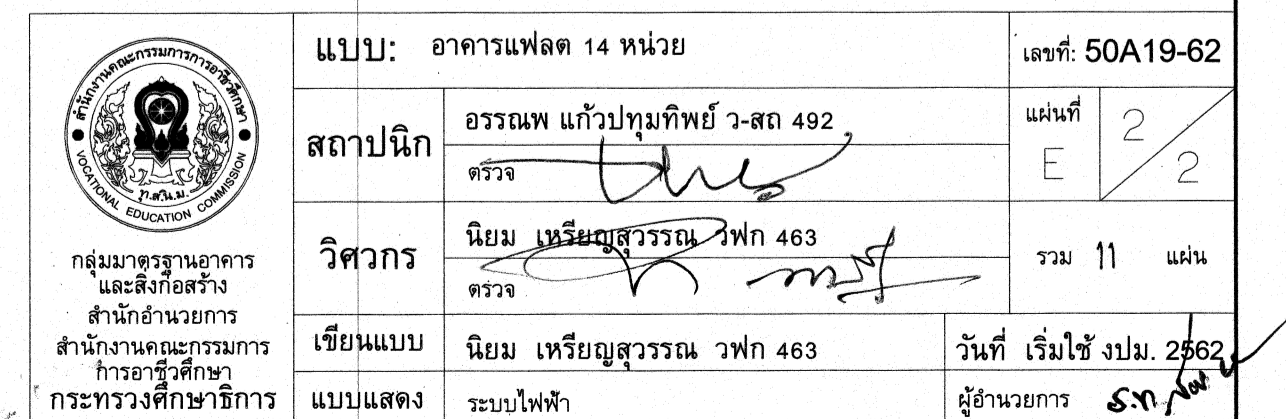 สำนักงานคณะกรรมการการอาชีวศึกษา
VOCATIONAL EDUCATION COMMISSION
กลุ่มมาตรฐานอาคาร
และสิ่งก่อสร้าง
สำนักอำนวยการ
สำนักงานคณะกรรมการ
การอาชีวศึกษา
กระทรวงศึกษาธิการ
แบบ: อาคารแฟลต 14 หน่วย
เลขที่: 50A19-62
สถาปนิก
อรรณพ แก้วปทุมทิพย์ ว-สถ 492
ตรวจ
แผ่นที่
E 2/2
วิศวกร
นิยม เหรียญสุวรรณ วฟก 463
ตรวจ
รวม 11 แผ่น
เขียนแบบ
นิยม เหรียญสุวรรณ วฟก 463
วันที่ เริ่มใช้ งปม. 2562
แบบแสดง
ระบบไฟฟ้า
ผู้อำนวยการ